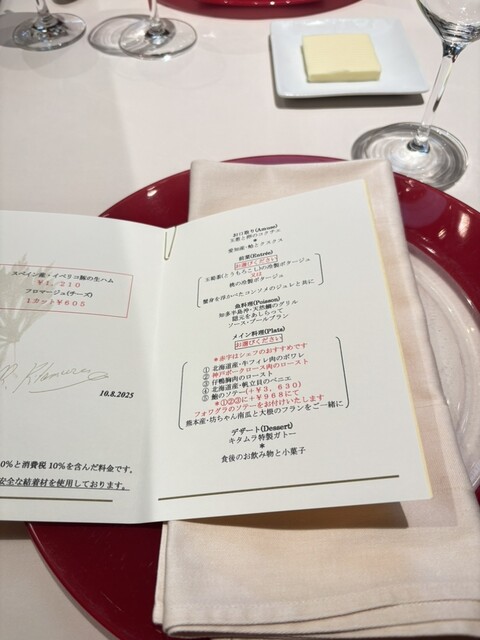 スペイン産・イベリコ豚の生ハム
￥1,210
フロマージュ(チーズ)
1カット￥605
10.8.2025
0%と消費税10%を含んだ料金です。
安全な結着材を使用しております。
お口取り(Amuse)
*
愛知産・鮎とクスクス
前菜(Entrée)
お選びください
王総裁(とうもろこし)の冷製ポタージュ
又は
桃の冷製ポタージュ
蟹身を浮かべたコンソメのジュレと共に
魚料理(Poisson)
知多半島沖・天然鯛のグリル
隠元をあしらって
ソース・ブールブラン
メイン料理(Plats)
お選びください
*赤字はシェフのおすすめです
① 北海道産・牛フィレ肉のポワレ
② 神戸ポークロース肉のロースト
③ 仔鴨胸肉のロースト
④ 北海道産・帆立貝のベニエ
⑤ 鮑のソテー(+￥3,630)
*①②③に+￥968にて
フォワグラのソテーをお付けいたします
熊本産・坊ちゃん南瓜と大根のフランをご一緒に
デザート(Dessert)
キタムラ特製ガトー
*
食後のお飲み物と小菓子